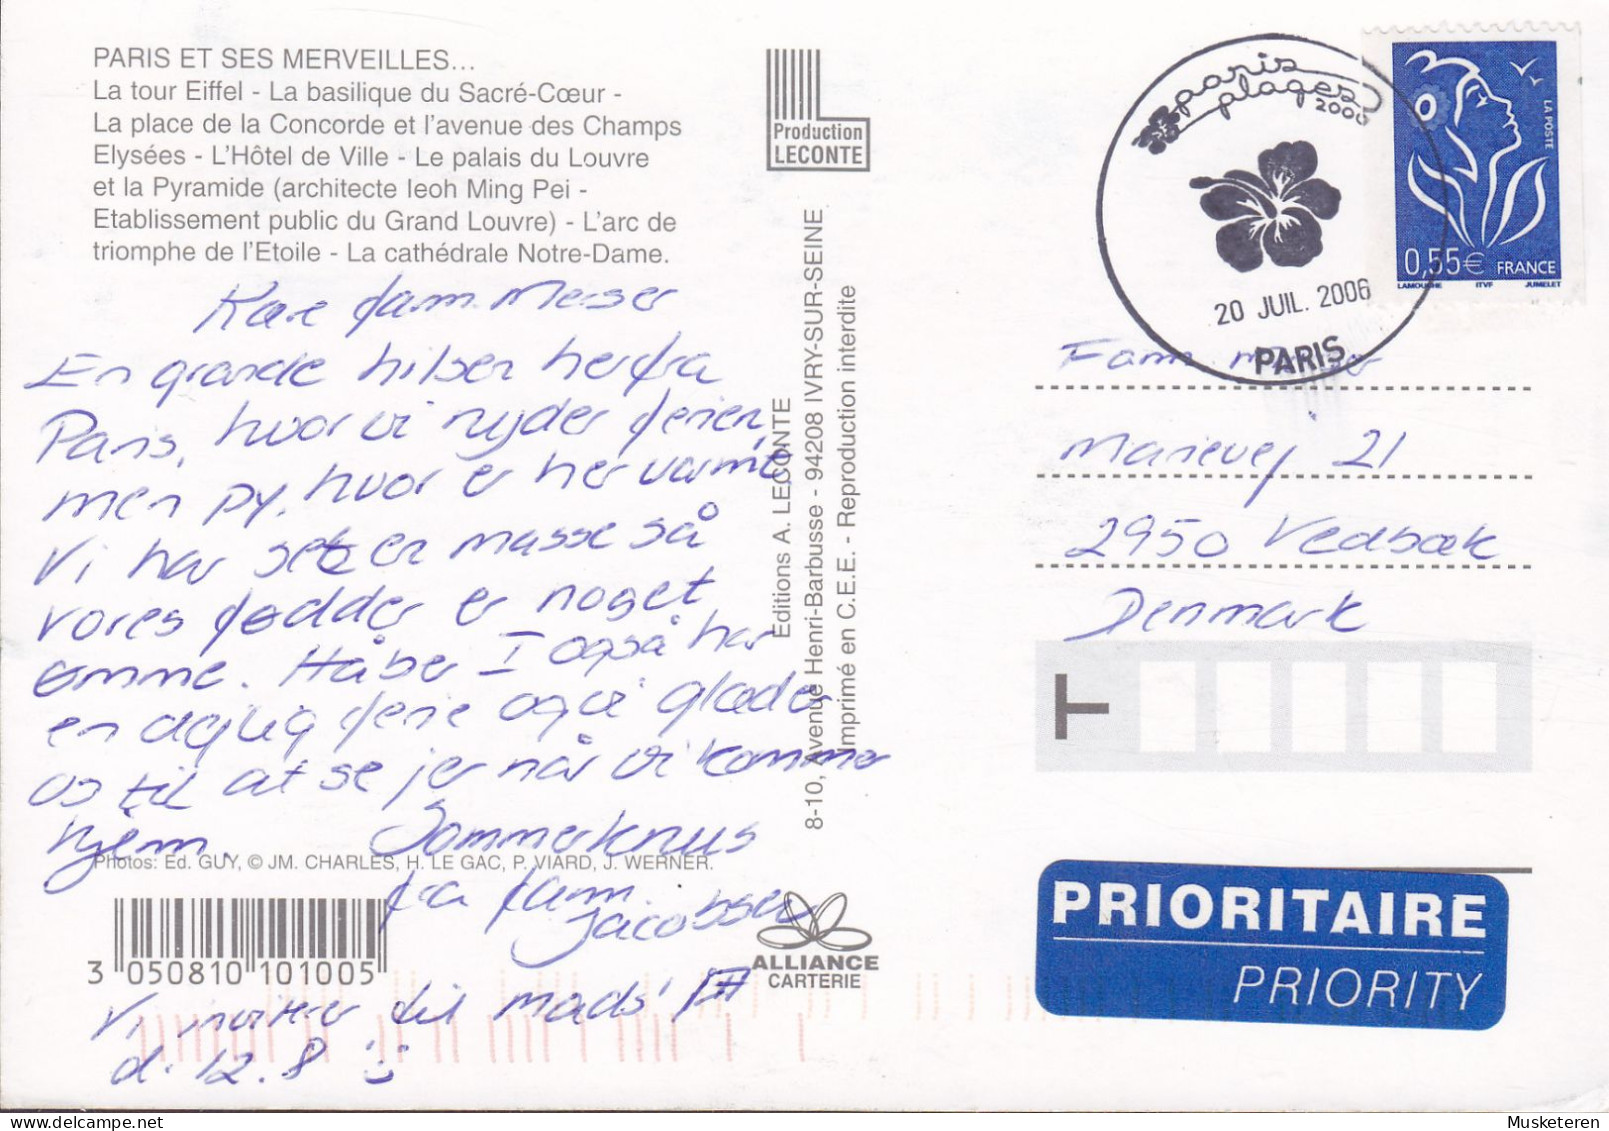 PARIS ET SES MERVEILLES...
La tour Eiffel - La basilique du Sacré-Cœur -
La place de la Concorde et l'avenue des Champs
Elysées - L'Hôtel de Ville - Le palais du Louvre
et la Pyramide (architecte Ieoh Ming Pei -
Etablissement public du Grand Louvre) - L'arc de
triomphe de l'Etoile - La cathédrale Notre-Dame.
Kære fam. Meiser
En grande hilsen herfra
Paris, hvor vi nyder ferien,
men py, hvor er her varmt
Vi har set en masse så
vores fødder er noget
ømme. Håber I også har
en dejlig ferie og vi glæder
os til at se jer når vi kommer
hjem. Sommerknus
Photos: Ed. GUY, © JM. CHARLES, H. LE GAC, P. VIARD, J. WERNER.
fra fam.
Jacobsen
3 050810 101005
Vi inviterer til mads'
d. 12.8
Production
LECONTE
Editions A. LECONTE
8-10, Avenue Henri-Barbusse - 94208 IVRY-SUR-SEINE
Imprimé en C.E.E. - Reproduction interdite
ALLIANCE
CARTERIE
paris
plages
2006
20 JUIL. 2006
PARIS
LA POSTE
0,55€ FRANCE
LAMOUCHE ITVF JUMELET
Fam.
Marievej 21
2950 Vedbæk
Denmark
T
PRIORITAIRE
PRIORITY
Musketeren